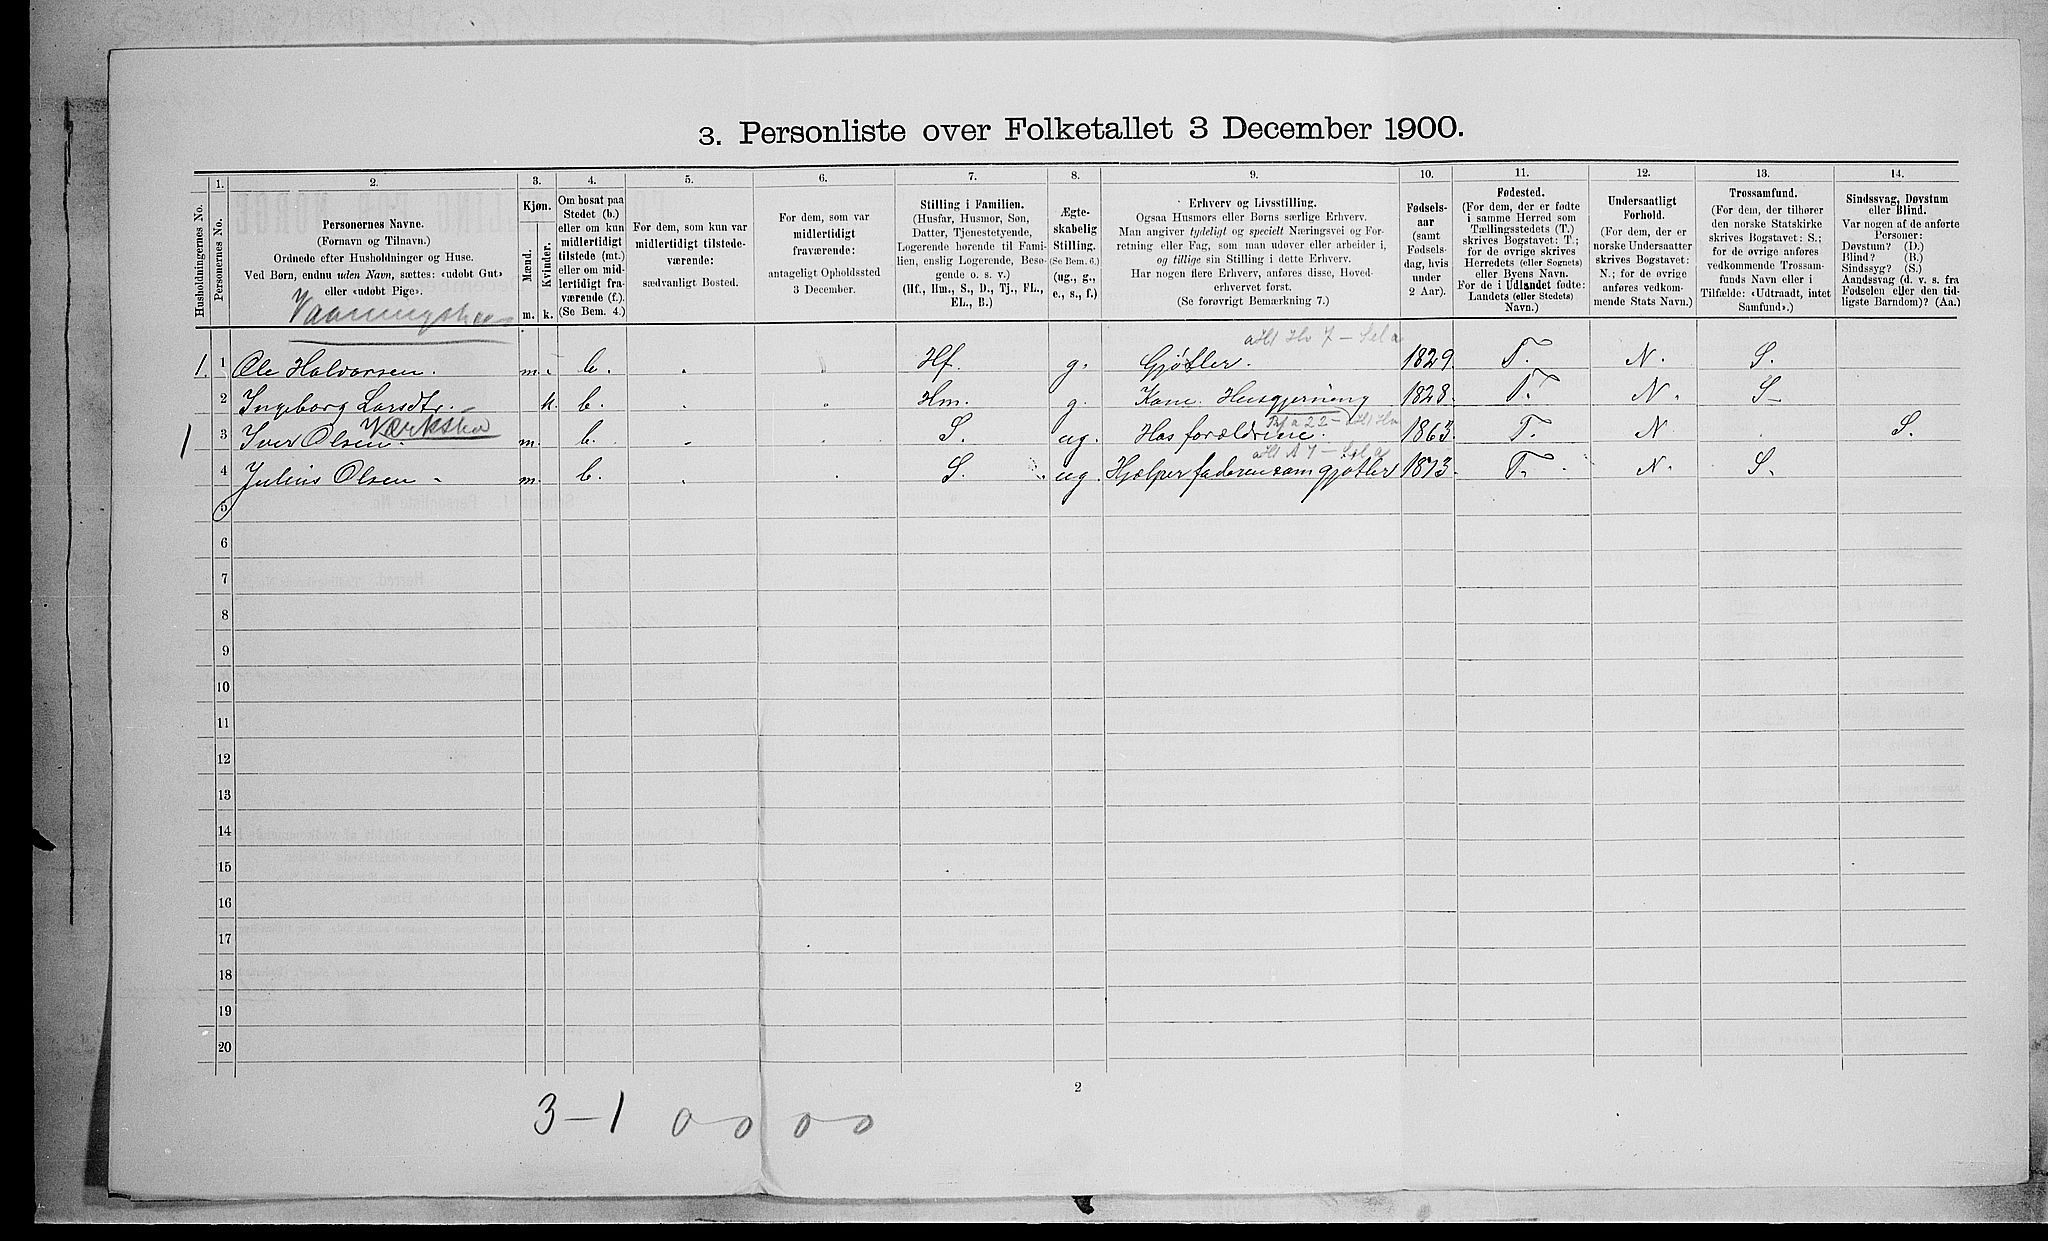 3. Personliste over Folketallet 3 December 1900.
1. 2. 3. 4. 5. 6. 7. 8. 9. 10. 11. 12. 13. 14.
Husholdningernes No.
Personernes No.
Personernes Navne.
(Fornavn og Tilnavn.)
Ordnede efter Husholdninger og Huse.
Ved Børn, endnu uden Navn, sættes: «udøbt Gut»
eller «udøbt Pige».
Kjøn.
Mænd.
Kvinder.
m. k.
Om bosat paa
Stedet (b.)
eller om kun
midlertidigt
tilstede (mt.)
eller om mid-
lertidigt fra-
værende (f.).
(Se Bem. 4.)
For dem, som kun var
midlertidigt tilstede-
værende:
sædvanligt Bosted.
For dem, som var
midlertidigt
fraværende:
antageligt Opholdssted
3 December.
Stilling i Familien.
(Husfar, Husmor, Søn,
Datter, Tjenestetyende,
Logerende hørende til Fami-
lien, enslig Logerende, Besø-
gende o. s. v.)
(Hf., Hm., S., D., Tj., FL.,
EL., B.)
Ægte-
skabelig
Stilling.
(Se Bem. 6.)
(ug., g.,
e., s., f.)
Erhverv og Livsstilling.
Ogsaa Husmors eller Børns særlige Erhverv.
Man angiver tydeligt og specielt Næringsvei og For-
retning eller Fag, som man udøver eller arbeider i,
og tillige sin Stilling i dette Erhverv.
Har nogen flere Erhverv, anføres disse, Hoved-
erhvervet først.
(Se forøvrigt Bemærkning 7.)
Fødsels-
aar
(samt
Fødsels-
dag, hvis
under
2 Aar).
Fødested.
(For dem, der er fødte
i samme Herred som
Tællingsstedets (T.)
skrives Bogstavet: T.;
for de øvrige skrives
Herredets (eller Sognets)
eller Byens Navn.
For de i Udlandet fødte:
Landets (eller Stedets)
Navn.)
Undersaatligt
Forhold.
(For dem, der er
norske Undersaatter
skrives Bogstavet:
N.; for de øvrige
anføres vedkom-
mende Stats Navn.)
Trossamfund.
(For dem, der tilhører
den norske Statskirke
skrives Bogstavet: S.;
for de øvrige anføres
vedkommende Trossam-
funds Navn eller i
Tilfælde: «Udtraadt, intet
Samfund».)
Sindssvag, Døvstum
eller Blind.
Var nogen af de anførte
Personer:
Døvstum? (D.)
Blind? (B.)
Sindssyg? (S.)
Aandssvag (d. v. s. fra
Fødselen eller den tid-
ligste Barndom)? (Aa.)
Vaaningshus
1. 1 Ole Halvorsen. m. b. Hf. g. Gjøtler. 1829. T. N. S.
2 Ingeborg Larsdtr. k. b. Hm. g. Kone. Husgjerning 1828. T. N. S
Værksted
1 3 Iver Olsen. m. b. S. ug. Hos forældrene. 1863. T. N S.
4 Julius Olsen m. b. S. ug. Hjælper faderen som gjøtler 1873. T. N. S.
5
6
7
8
9
10
11
12
13
14
15
16
17
18
19
20
2
3 – 1 0 0 0 0